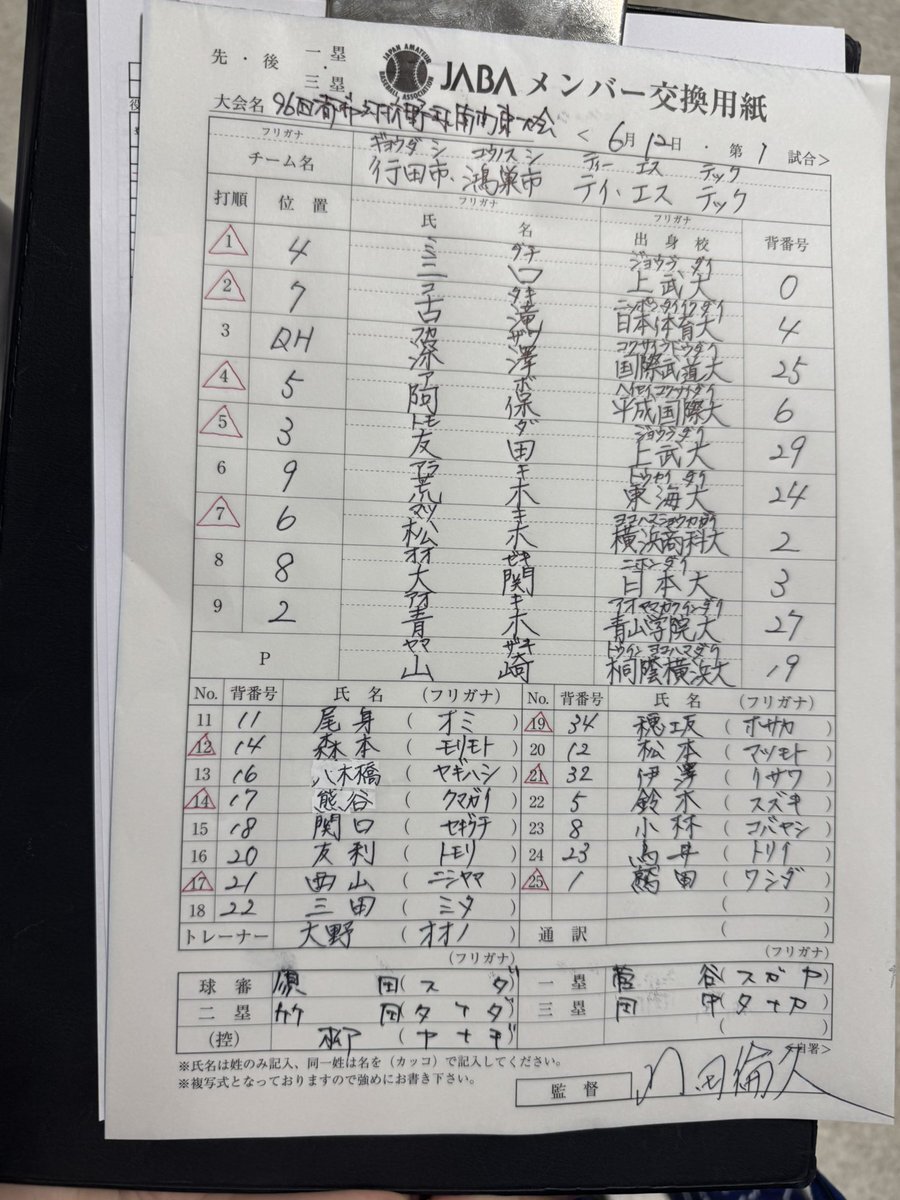 先・後 一塁・三塁 JAPAN AMATEUR BASEBALL ASSOCIATION JABA メンバー交換用紙
大会名 96回都市対抗野球南関東大会 < 6月12日・第1試合>
フリガナ ギョウダシ コウノスシ ティー エス テック
チーム名 行田市・鴻巣市 ティ・エス テック
打順 位置 フリガナ 氏名 フリガナ 出身校 背番号
ミ グチ ジョウブダイ
1 4 三 口 上武大 0
コ タキ ニッポンタイイクダイ
2 7 古 滝 日本体育大 4
フカ ザワ コクサイブドウダイ
3 DH 深 澤 国際武道大 25
ア ボ ヘイセイコクサイダイ
4 5 阿 保 平成国際大 6
トモ ダ ジョウブダイ
5 3 友 田 上武大 29
アラ キ トウカイダイ
6 9 荒 木 東海大 24
マツ キ ヨコハマショウカダイ
7 6 松 木 横浜商科大 2
オオ ゼキ ニホンダイ
8 8 大 関 日本大 3
アオ キ アオヤマガクインダイ
9 2 青 木 青山学院大 27
ヤマ ザキ トウインヨコハマダイ
P 山 崎 桐蔭横浜大 19
No. 背番号 氏名 (フリガナ) No. 背番号 氏名 (フリガナ)
11 11 尾身 (オミ) 19 34 穂坂 (ホサカ)
12 14 森本 (モリモト) 20 12 松本 (マツモト)
13 16 八木橋 (ヤギハシ) 21 32 伊澤 (イサワ)
14 17 熊谷 (クマガイ) 22 5 鈴木 (スズキ)
15 18 関口 (セキグチ) 23 8 小林 (コバヤシ)
16 20 友利 (トモリ) 24 23 鳥井 (トリイ)
17 21 西山 (ニシヤマ) 25 1 鷲田 (ワシダ)
18 22 三田 (ミタ) ( )
トレーナー 大野 (オオノ) 通訳 ( )
(フリガナ) (フリガナ)
球審 須田 (スダ) 一塁 菅谷 (スガヤ)
二塁 田 三塁 田中 (タナカ)
(控) 柳 (ヤナギ) ( )
※氏名は姓のみ記入、同一姓は名を(カッコ)で記入してください。 <自署>
※複写式となっておりますので強めにお書き下さい。
監督